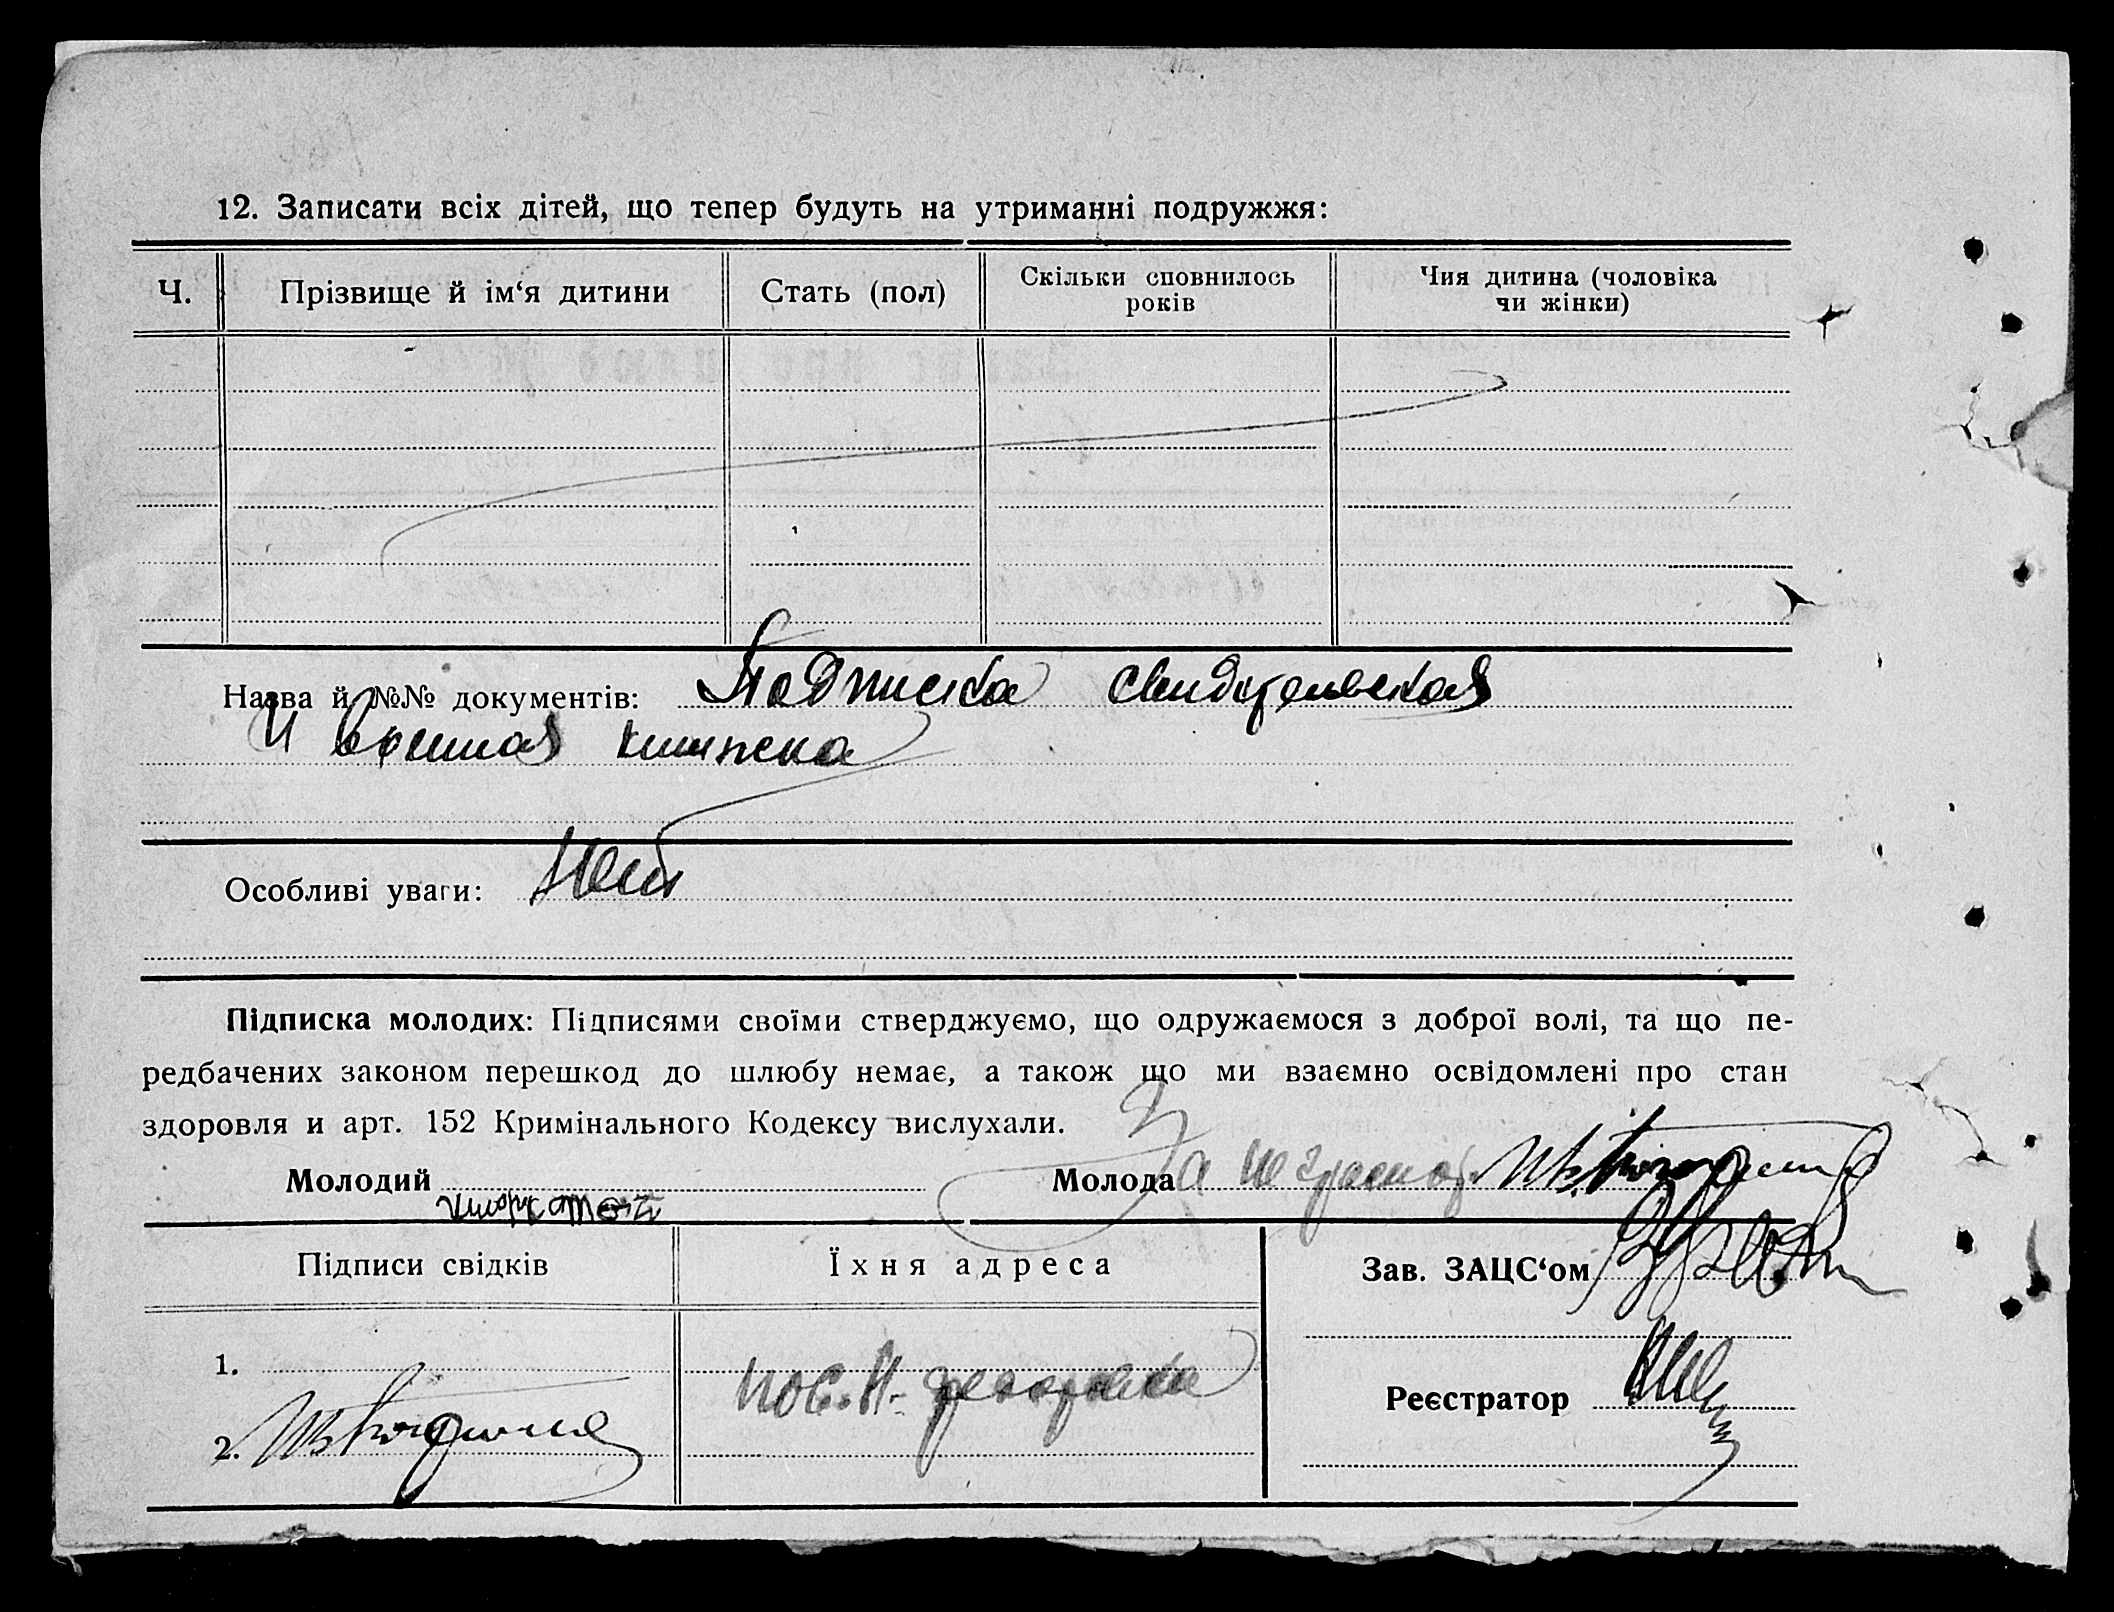 12. Записати всіх дітей, що тепер будуть на утриманні подружжя:
Ч.
Прізвище й ім‘я дитини
Стать (пол)
Скільки сповнилось
років
Чия дитина (чоловіка
чи жінки)
Назва й №№ документів: Подписка свидетельская
и военная книжка
Особливі уваги: Нет
Підписка молодих: Підписями своїми стверджуємо, що одружаємося з доброї волі, та що пе-
редбачених законом перешкод до шлюбу немає, а також що ми взаємно освідомлені про стан
здоровля и арт. 152 Кримінального Кодексу вислухали.
Молодий
Молода За неграмот
Підписи свідків
Їхня адреса
Зав. ЗАЦС‘ом
1.
2.
пос. Н.
Реєстратор